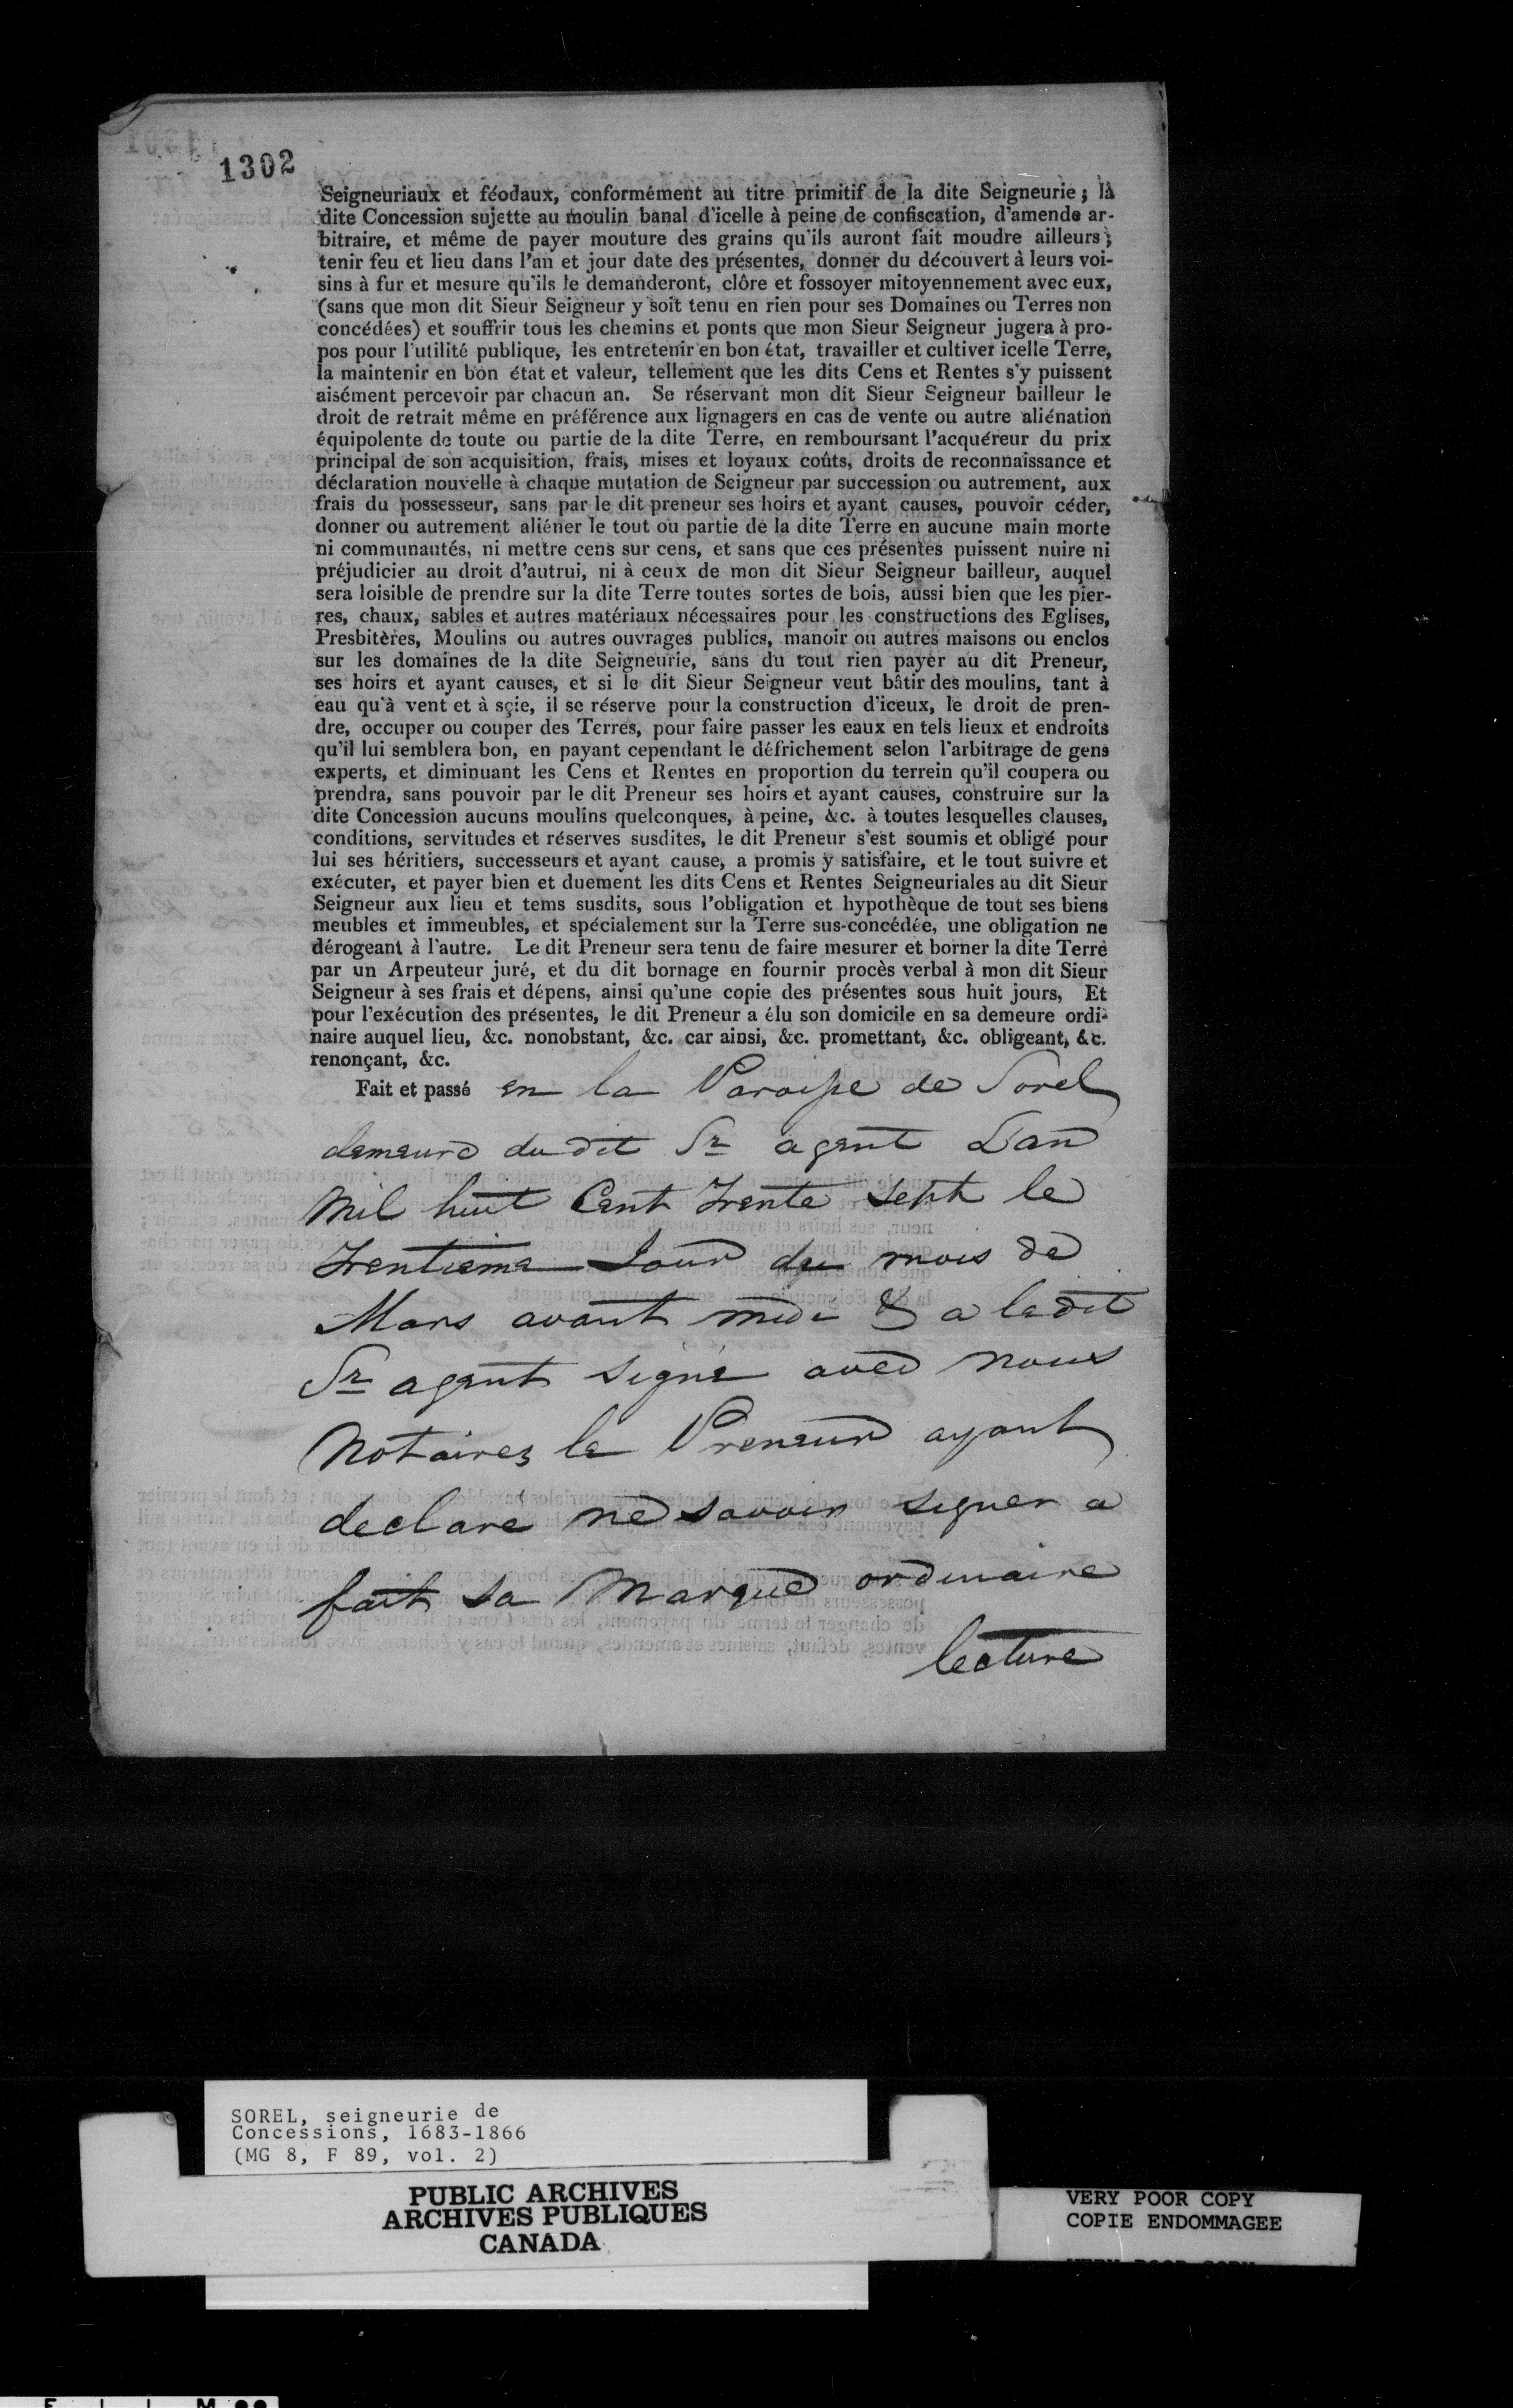 1302
Seigneuriaux et féodaux, conformément au titre primitif de la dite Seigneurie; la
dite Concession sujette au moulin banal d'icelle à peine de confiscation, d'amende ar-
bitraire, et même de payer mouture des grains qu'ils auront fait moudre ailleurs;
tenir feu et lieu dans l'an et jour date des présentes, donner du découvert à leurs voi-
sins à fur et mesure qu'ils le demanderont, clôre et fossoyer mitoyennement avec eux,
(sans que mon dit Sieur Seigneur y soit tenu en rien pour ses Domaines ou Terres non
concédées) et souffrir tous les chemins et ponts que mon Sieur Seigneur jugera à pro-
pos pour l'utilité publique, les entretenir en bon état, travailler et cultiver icelle Terre,
la maintenir en bon état et valeur, tellement que les dits Cens et Rentes s'y puissent
aisément percevoir par chacun an. Se réservant mon dit Sieur Seigneur bailleur le
droit de retrait même en préférence aux lignagers en cas de vente ou autre aliénation
équipolente de toute ou partie de la dite Terre, en remboursant l'acquéreur du prix
principal de son acquisition, frais, mises et loyaux coûts, droits de reconnaissance et
déclaration nouvelle à chaque mutation de Seigneur par succession ou autrement, aux
frais du possesseur, sans par le dit preneur ses hoirs et ayant causes, pouvoir céder,
donner ou autrement aliéner le tout ou partie de la dite Terre en aucune main morte
ni communautés, ni mettre cens sur cens, et sans que ces présentes puissent nuire ni
préjudicier au droit d'autrui, ni à ceux de mon dit Sieur Seigneur bailleur, auquel
sera loisible de prendre sur la dite Terre toutes sortes de bois, aussi bien que les pier-
res, chaux, sables et autres matériaux nécessaires pour les constructions des Eglises,
Presbitères, Moulins ou autres ouvrages publics, manoir ou autres maisons ou enclos
sur les domaines de la dite Seigneurie, sans du tout rien payer au dit Preneur,
ses hoirs et ayant causes, et si le dit Sieur Seigneur veut bâtir des moulins, tant à
eau qu'à vent et à sçie, il se réserve pour la construction d'iceux, le droit de pren-
dre, occuper ou couper des Terres, pour faire passer les eaux en tels lieux et endroits
qu'il lui semblera bon, en payant cependant le défrichement selon l'arbitrage de gens
experts, et diminuant les Cens et Rentes en proportion du terrein qu'il coupera ou
prendra, sans pouvoir par le dit Preneur ses hoirs et ayant causes, construire sur la
dite Concession aucuns moulins quelconques, à peine, &c. à toutes lesquelles clauses,
conditions, servitudes et réserves susdites, le dit Preneur s'est soumis et obligé pour
lui ses héritiers, successeurs et ayant cause, a promis y satisfaire, et le tout suivre et
exécuter, et payer bien et duement les dits Cens et Rentes Seigneuriales au dit Sieur
Seigneur aux lieu et tems susdits, sous l'obligation et hypothèque de tout ses biens
meubles et immeubles, et spécialement sur la Terre sus-concédée, une obligation ne
dérogeant à l'autre. Le dit Preneur sera tenu de faire mesurer et borner la dite Terre
par un Arpeuteur juré, et du dit bornage en fournir procès verbal à mon dit Sieur
Seigneur à ses frais et dépens, ainsi qu'une copie des présentes sous huit jours, Et
pour l'exécution des présentes, le dit Preneur a élu son domicile en sa demeure ordi-
naire auquel lieu, &c. nonobstant, &c. car ainsi, &c. promettant, &c. obligeant, &c.
renonçant, &c.
Fait et passé en la Paroisse de Sorel
demeure du dit Sr agent L'an
Mil huit Cent Trente Sept le
Trentieme Jour du mois de
Mars avant midi & a ledit
Sr agent signé avec nous
Notaires le Preneur ayant
declaré ne savoir signer a
fait sa Marque ordinaire
lecture
SOREL, seigneurie de
Concessions, 1683-1866
(MG 8, F 89, vol. 2)
PUBLIC ARCHIVES
ARCHIVES PUBLIQUES
CANADA
VERY POOR COPY
COPIE ENDOMMAGEE